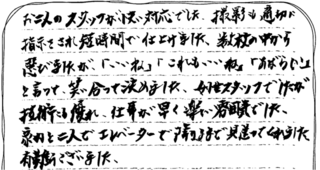 お二人のスタッフが良い対応でした、撮影も適切に
指示され短時間で仕上げました、数枚の中から
選びましたが、「いいね」「これもいいね」「あばらしい」
と言って、笑い合って決めました、女性スタッフでしたが
技術も優れ、仕事が早く楽い時間でした、
最后と二人でエレベーターで降りるまで見送ってくれました
有難うございました、